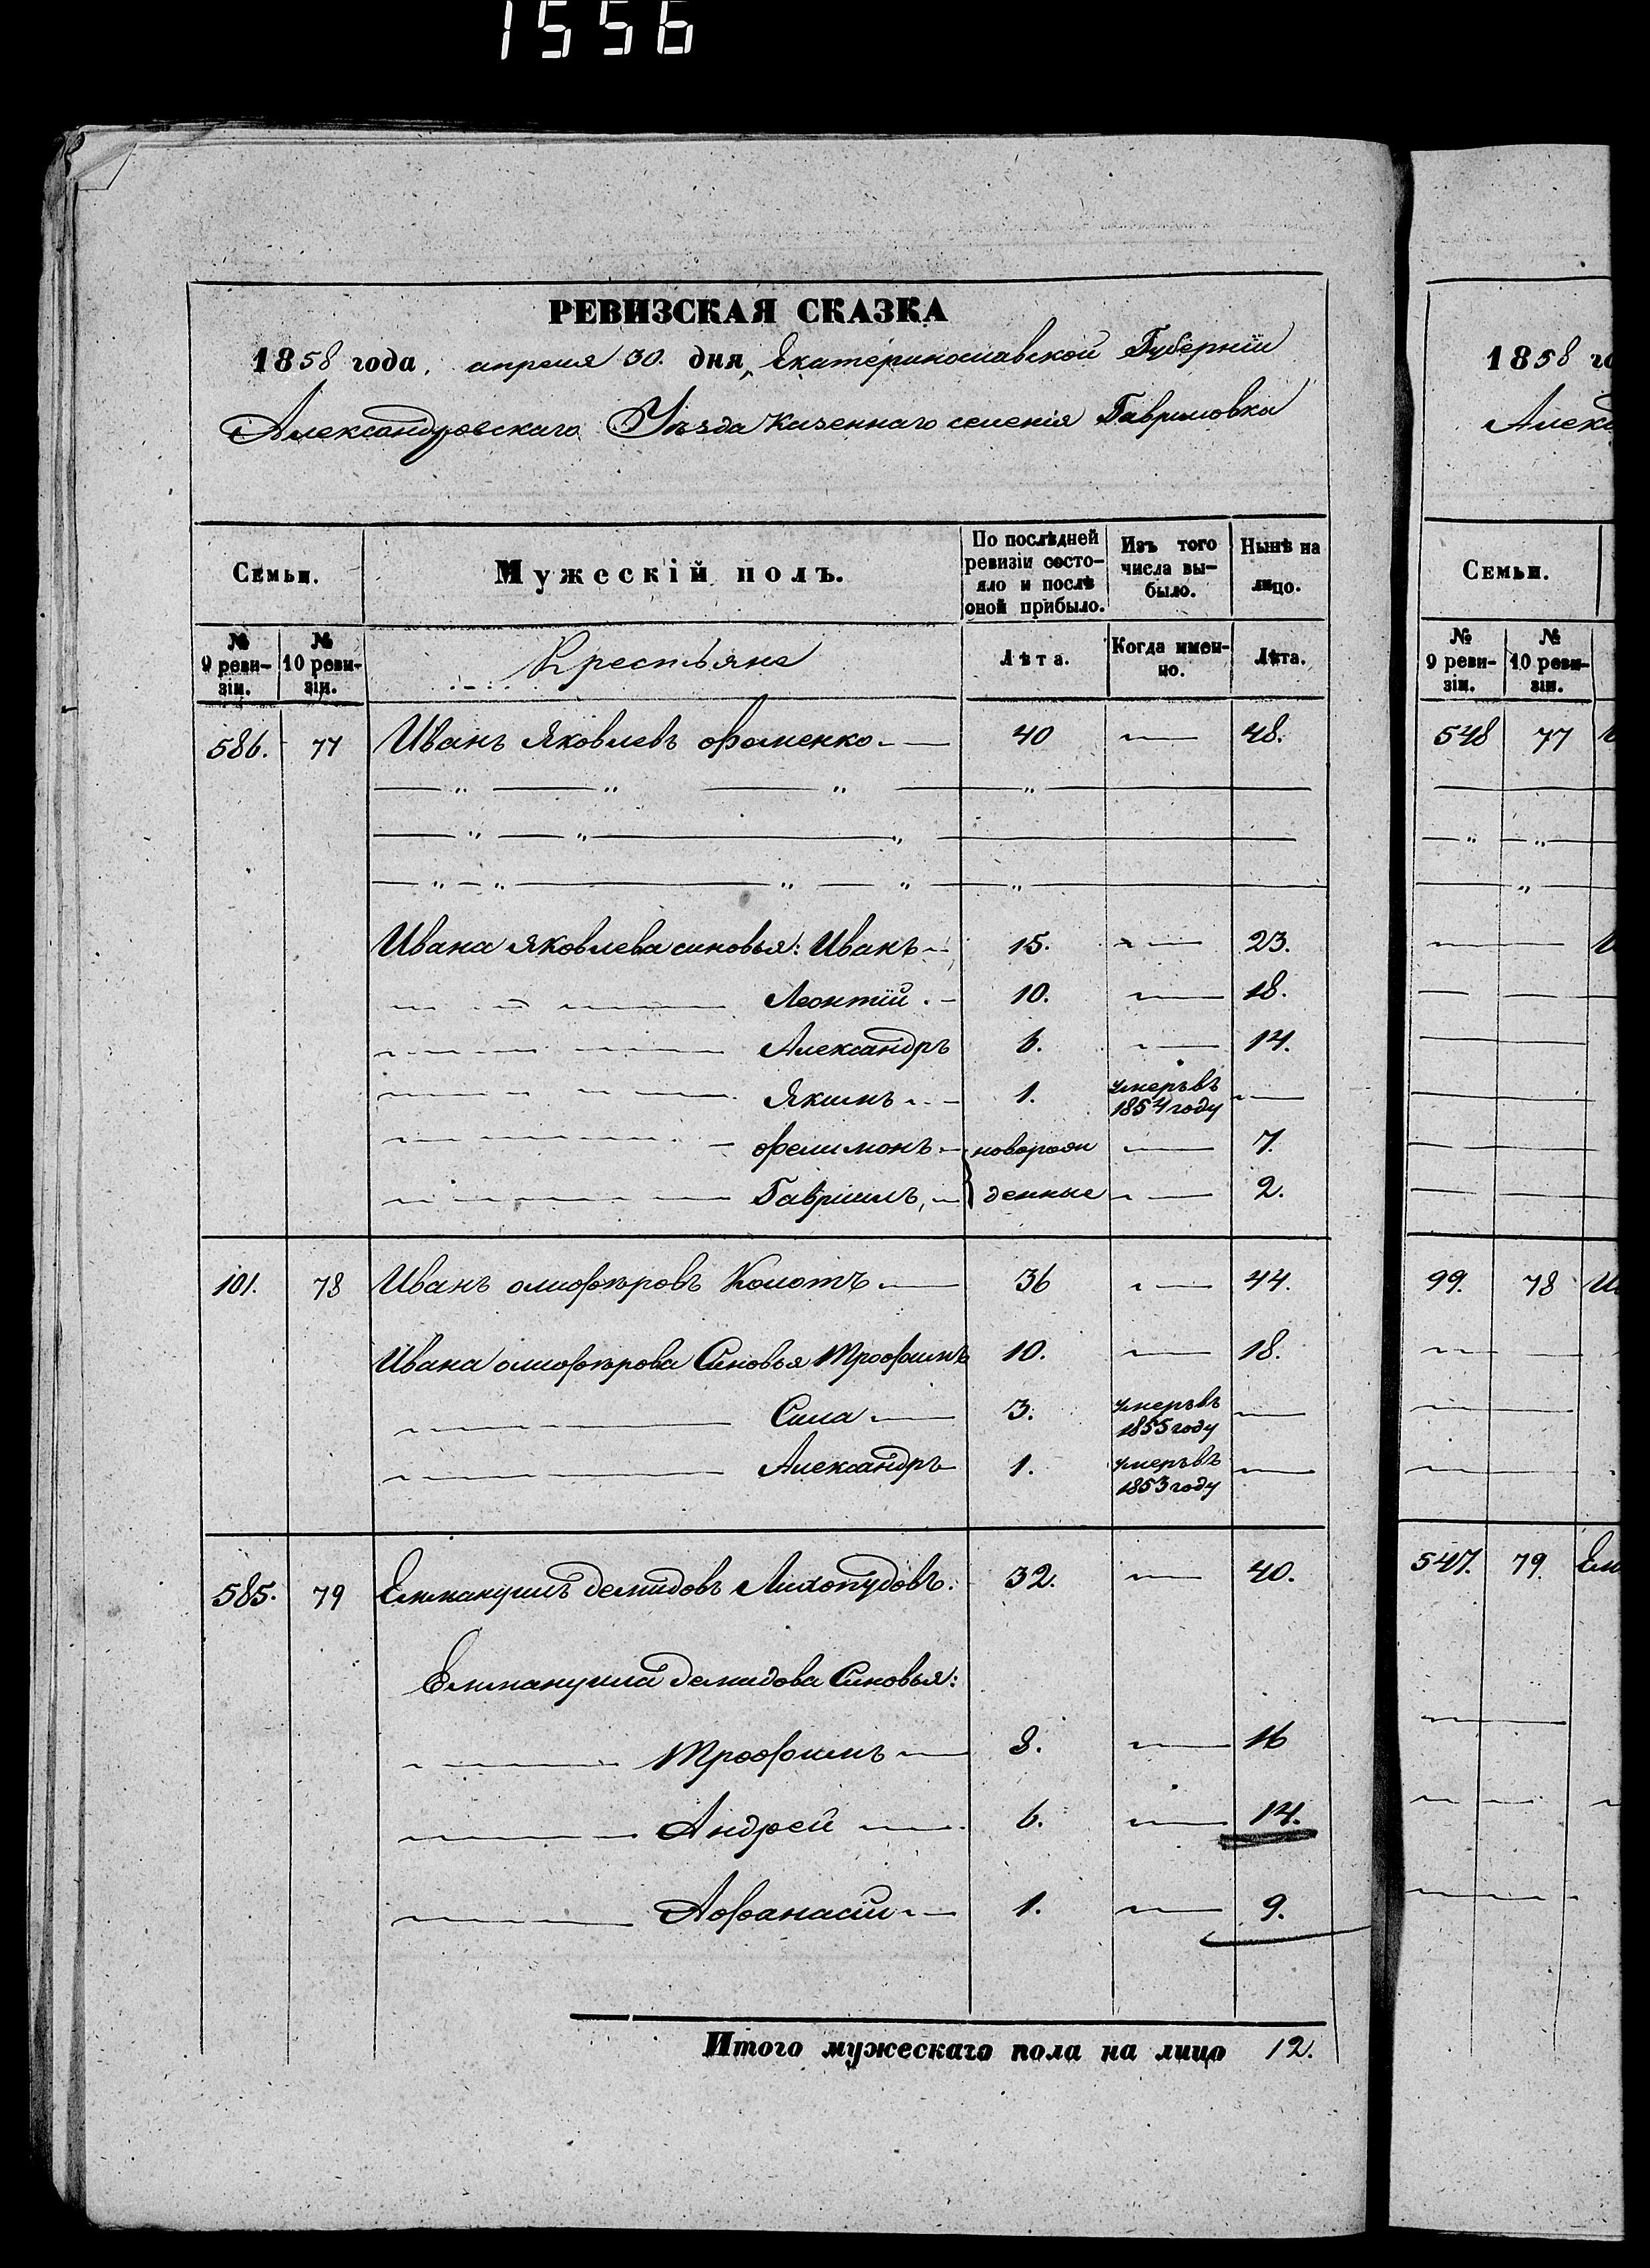 1556
РЕВИЗСКАЯ СКАЗКА
1858 года, апреля 30. дня, Екатеринославской Губернїи
Александровскаго Уѣзда Казеннаго селенія Гавриловки
Семьи.
Мужескій полъ.
По послѣдней ревизіи состо-
яло и послѣ оной прибыло.
Изъ того числа вы-
было.
Нынѣ на лицо.
№ 9 реви-
зіи.
№ 10 реви-
зіи.
Крестьяне
Лѣта.
Когда имен-
но.
Лѣта.
586. 77 Иванъ Яковлевъ Фоменко 40 — 48.
Ивана Яковлева синовья: Иванъ 15. — 23.
Леонтїй 10. — 18.
Александръ 6. — 14.
Якимъ 1. умеръ въ 1854 году —
Филимонъ новорож 7.
Гавріилъ, денные 2.
101. 78 Иванъ Олиферовъ Колотъ 36 — 44.
Ивана Олиферова Синовья Трофимъ 10. — 18.
Сила 3. умеръ въ 1855 году —
Александръ 1. умеръ въ 1853 году —
585. 79 Еммануилъ Демидовъ Лихопудовъ. 32. — 40.
Еммануила Демидова Синовья:
Трофимъ 8. — 16
Андрей 6. — 14.
Афанасій 1. — 9.
Итого мужескаго пола на лицо 12.
1858 го
Алекс
Семьи.
№ 9 реви-
зіи.
№ 10 реви-
зіи.
548 77
99. 78
547. 79. Ем